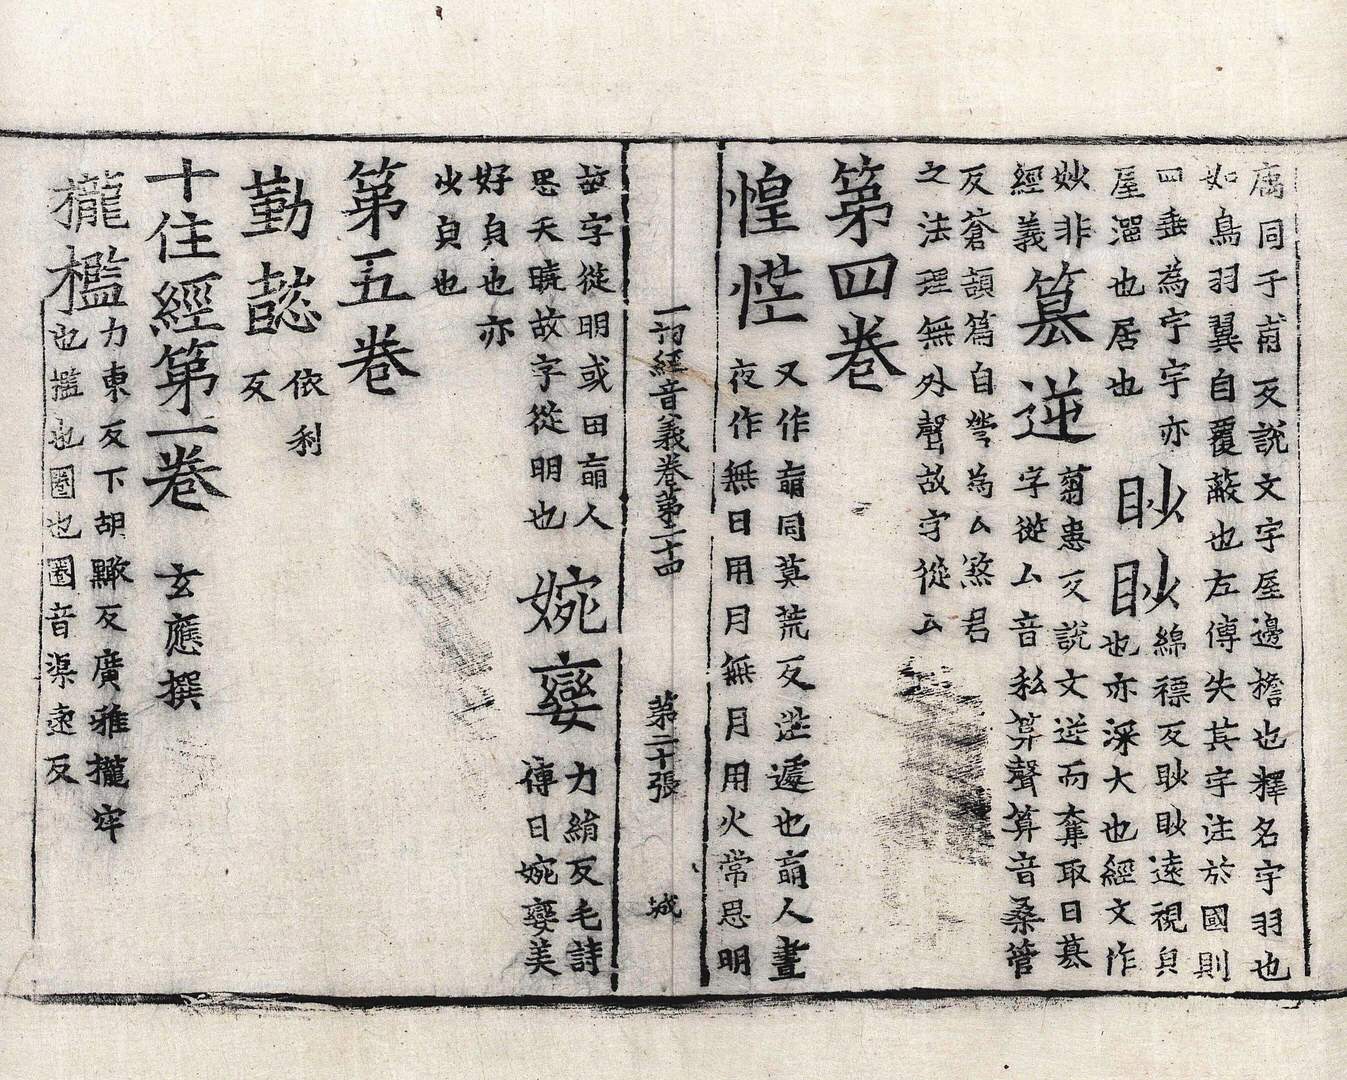 庿同于甫反說文宇屋邊檐也釋名宇羽也
如鳥羽翼自覆蔽也左傳失其宇注於國則
四垂為宇宇亦
屋溜也居也
眇眇
綿褾反眇眇遠視皃
也亦深大也經文作
妙非
經義
篡逆
蒭患反說文逆而奪取曰篡
字從厶音私算聲算音桑管
反蒼頡篇自營為厶煞君
之法理無外聲故字從厶
第四卷
惶㤺
又作朚同莫荒反茫遽也朚人晝
夜作無日用月無月用火常思明
一切經音義卷第二十四 第二十張 城
故字從明或曰朚人
思天曉故字從明也
婉孌
力絹反毛詩
傳曰婉孌美
好皃也亦
少皃也
第五卷
勤懿
依利
反
十住經第一卷 玄應撰
攏檻
力東反下胡黤反廣雅攏牢
也檻也圈也圈音渠遠反